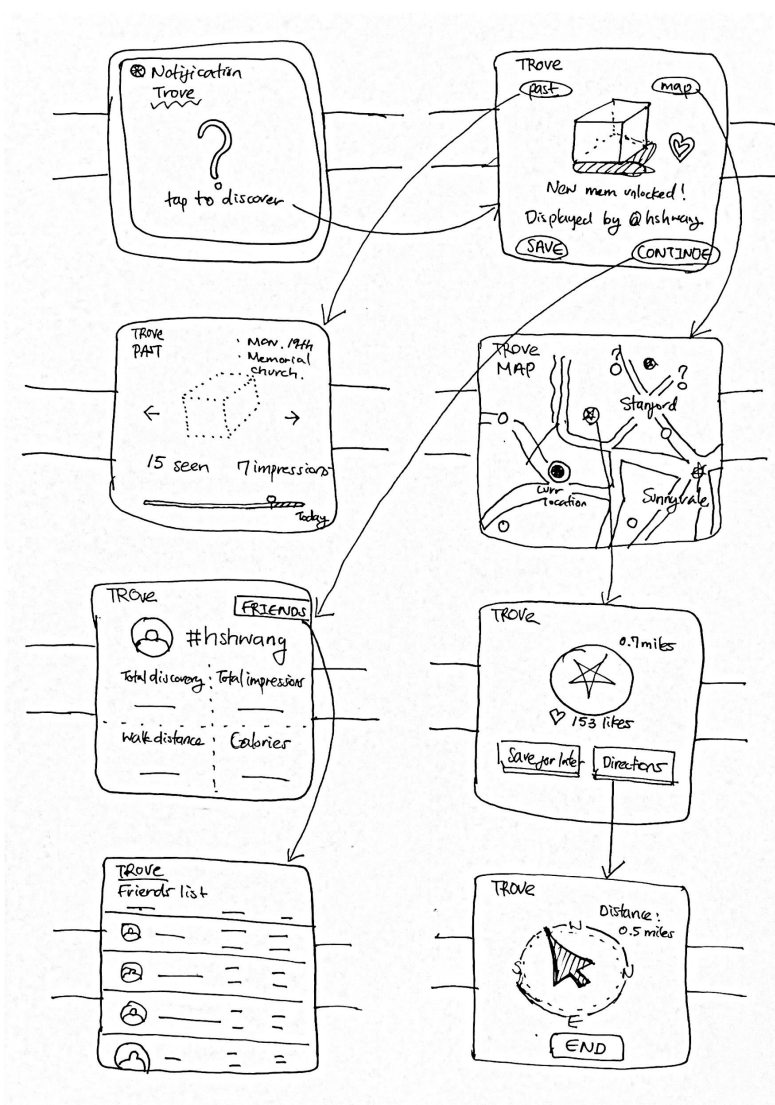 Notification
Trove
?
tap to discover
TROVE
past
map
New mem unlocked!
Displayed by @hshwang
SAVE
CONTINUE
TROVE
PAST
19th
Memorial
church.
15 seen 7 impressions
Today
TROVE
MAP
?
?
Stanford
Curr
location
Sunnyvale
TROVE
FRIENDS
#hshwang
Total discovery
Total impressions
Walk distance
Calories
TROVE
0.7 miles
153 likes
Save for later
Directions
TROVE
Friends list
TROVE
Distance:
0.5 miles
N
S
N
E
END